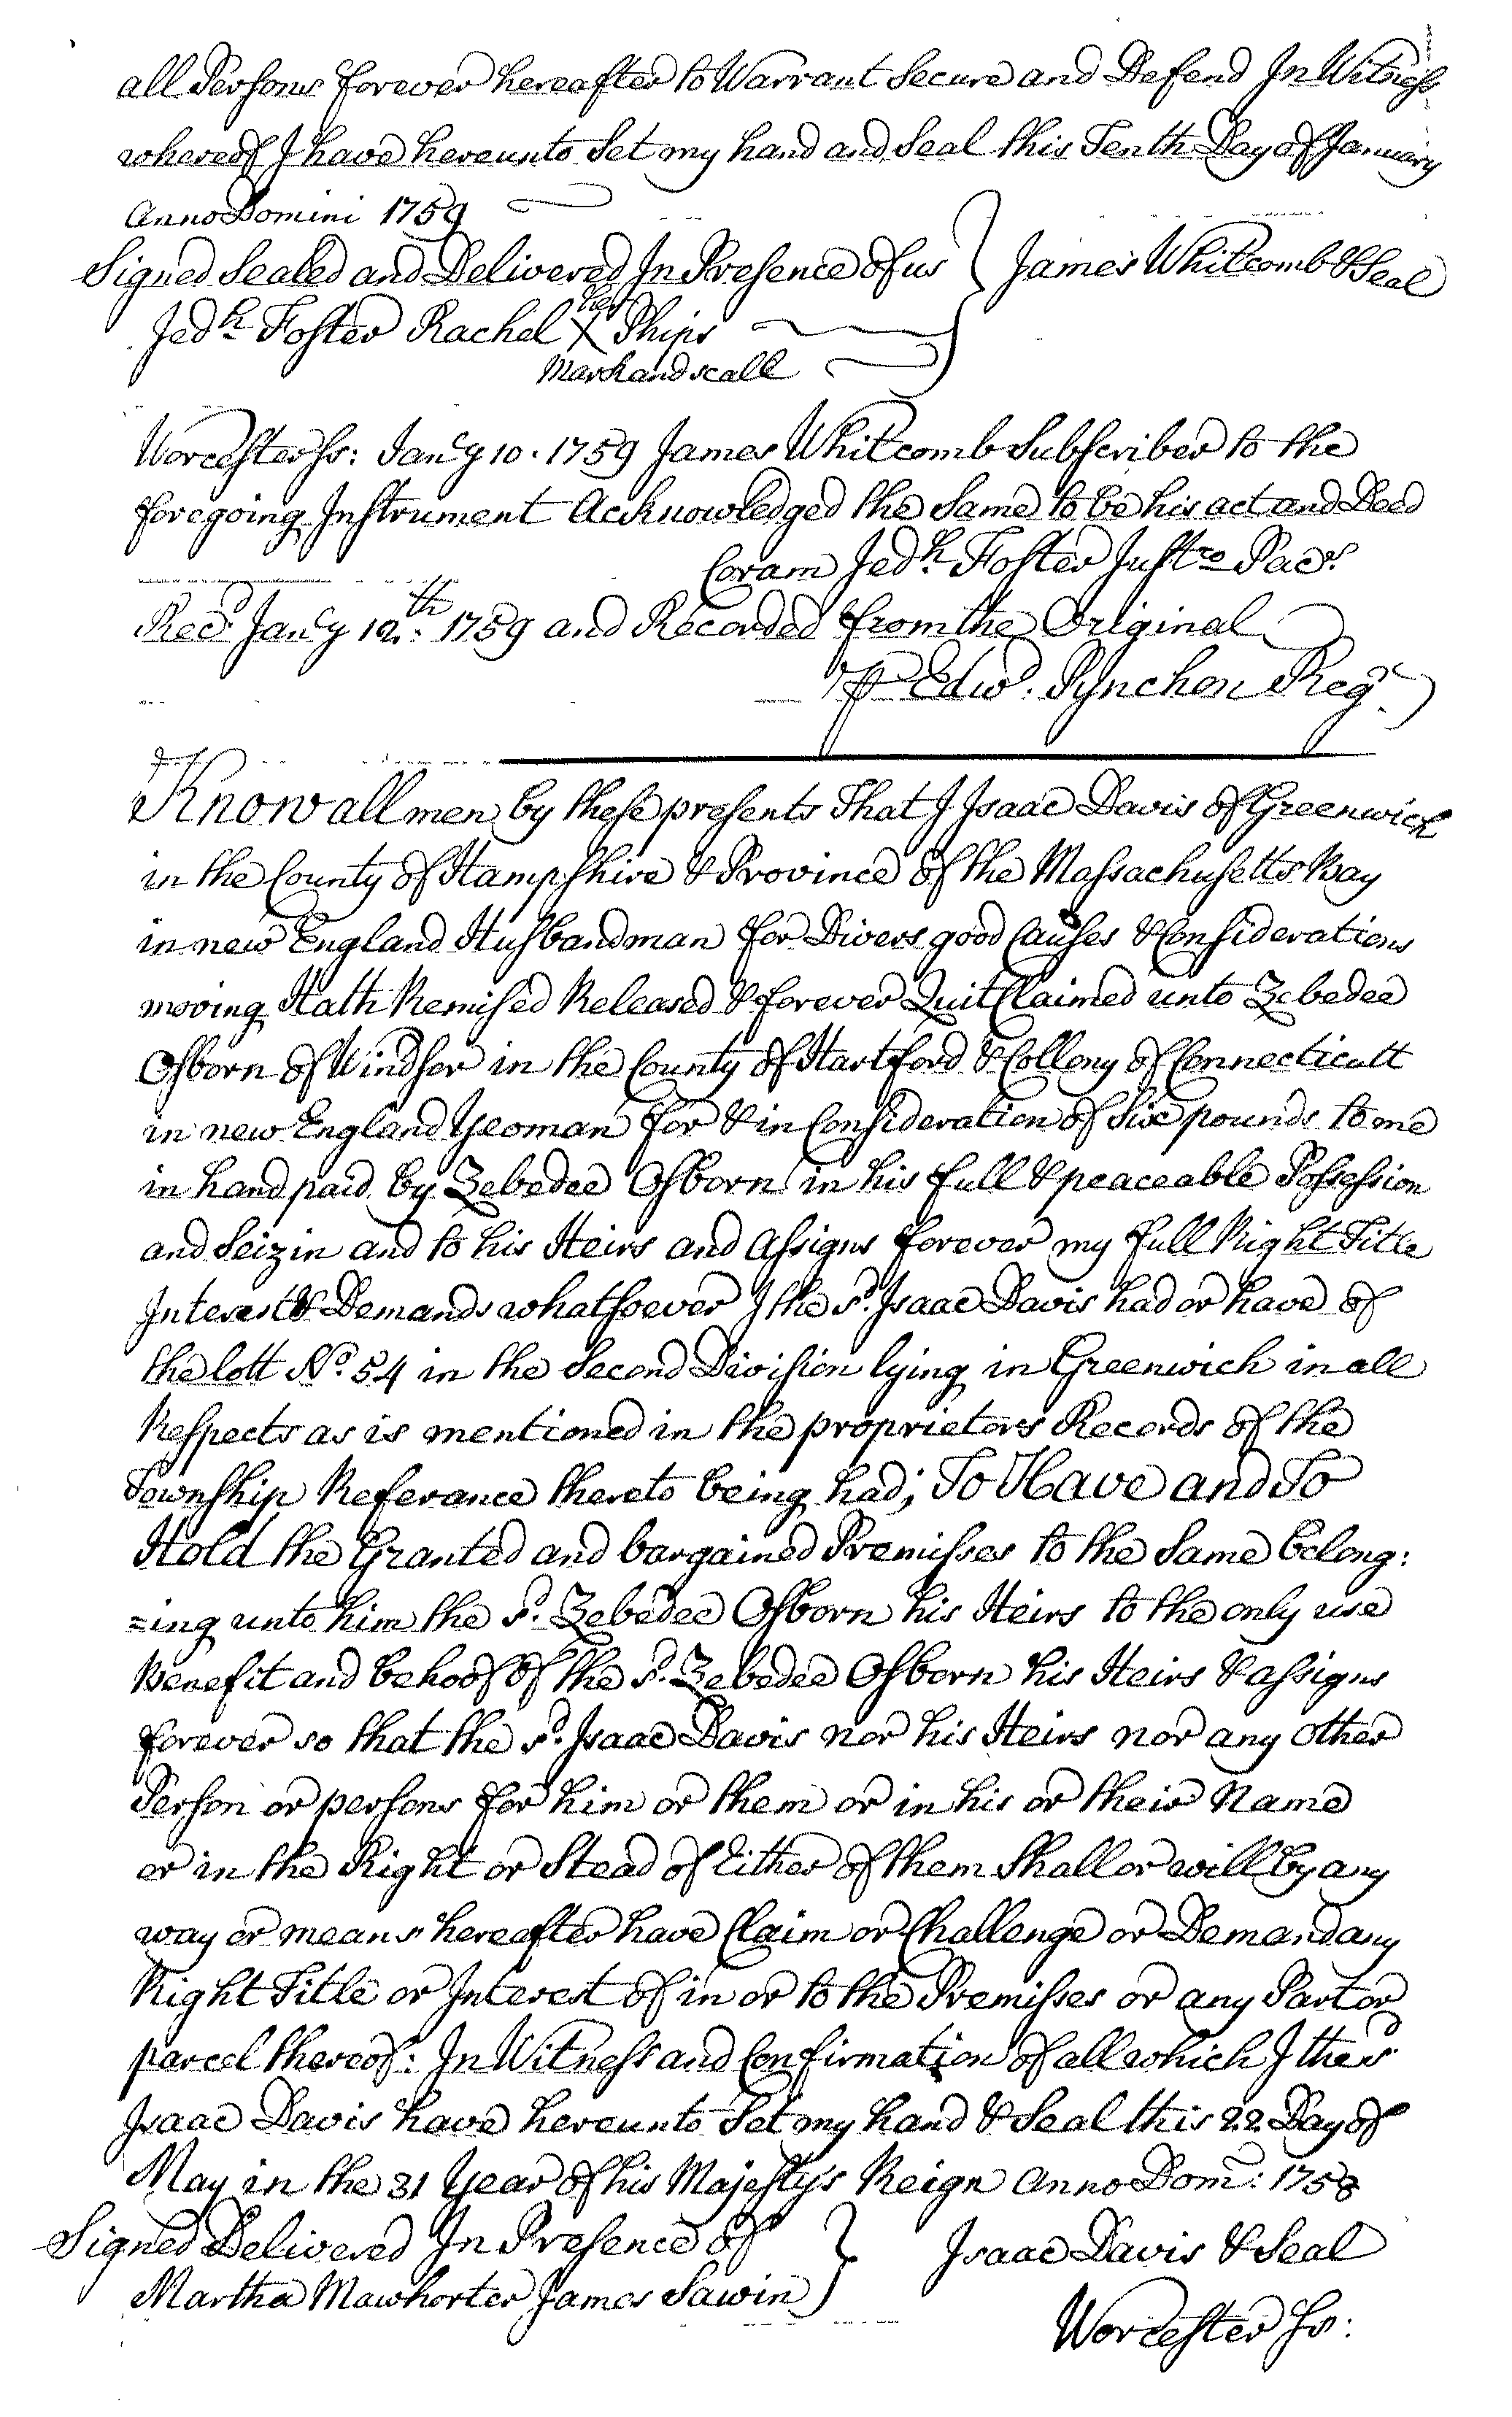 all Persons forever hereafter to Warrant Secure and Defend In Witness
whereof I have hereunto Set my hand and Seal this Tenth Day of January
Anno Domini 1759
Signed Sealed and Delivered In Presence of us } James Whitcomb & Seal
her
Jedh Foster Rachel X Phips
Mark and seall
Worcester ss: Jany 10. 1759 James Whitcomb Subscriber to the
foregoing Instrument Acknowledged the Same to be his act and Deed
Coram Jedh Foster Justce Pacs.
Recd Jany 12th: 1759 and Recorded from the Original
⅌ Edwd. Pynchon Regr.
Know all men by these presents That I Isaac Davis of Greenwich
in the County of Hampshire & Province of the Massachusetts Bay
in new England Husbandman for Divers good Causes & Considerations
moving Hath Remised Released & forever Quit Claimed unto Zebedee
Osborn of Windsor in the County of Hartford & Collony of Connecticutt
in new England Yeoman for & in Consideration of Six pounds to me
in hand paid by Zebedee Osborn in his full & peaceable Possession
and Seizin and to his Heirs and Assigns forever my full Right Title
Interest & Demands whatsoever I the sd. Isaac Davis had or have of
the lott No. 54 in the Second Division lying in Greenwich in all
Respects as is mentioned in the proprietors Records of the
Township Referance thereto being had; To Have and To
Hold the Granted and bargained Premisses to the Same belong:
=ing unto him the sd. Zebedee Osborn his Heirs to the only use
Benefit and behoof of the sd. Zebedee Osborn his Heirs & assigns
forever so that the sd. Isaac Davis nor his Heirs nor any other
Person or persons for him or them or in his or their Name
or in the Right or Stead of Either of them Shall or will by any
way or means hereafter have Claim or Challenge or Demand any
Right Title or Interest of in or to the Premisses or any Part or
parcel thereof: In Witness and Confirmation of all which I the sd
Isaac Davis have hereunto Set my hand & Seal this 22 Day of
May in the 31 Year of his Majesty's Reign Anno Dom: 1758
Signed Delivered In Presence of } Isaac Davis & Seal
Martha Mawhorter James Sawin
Worcester ss: